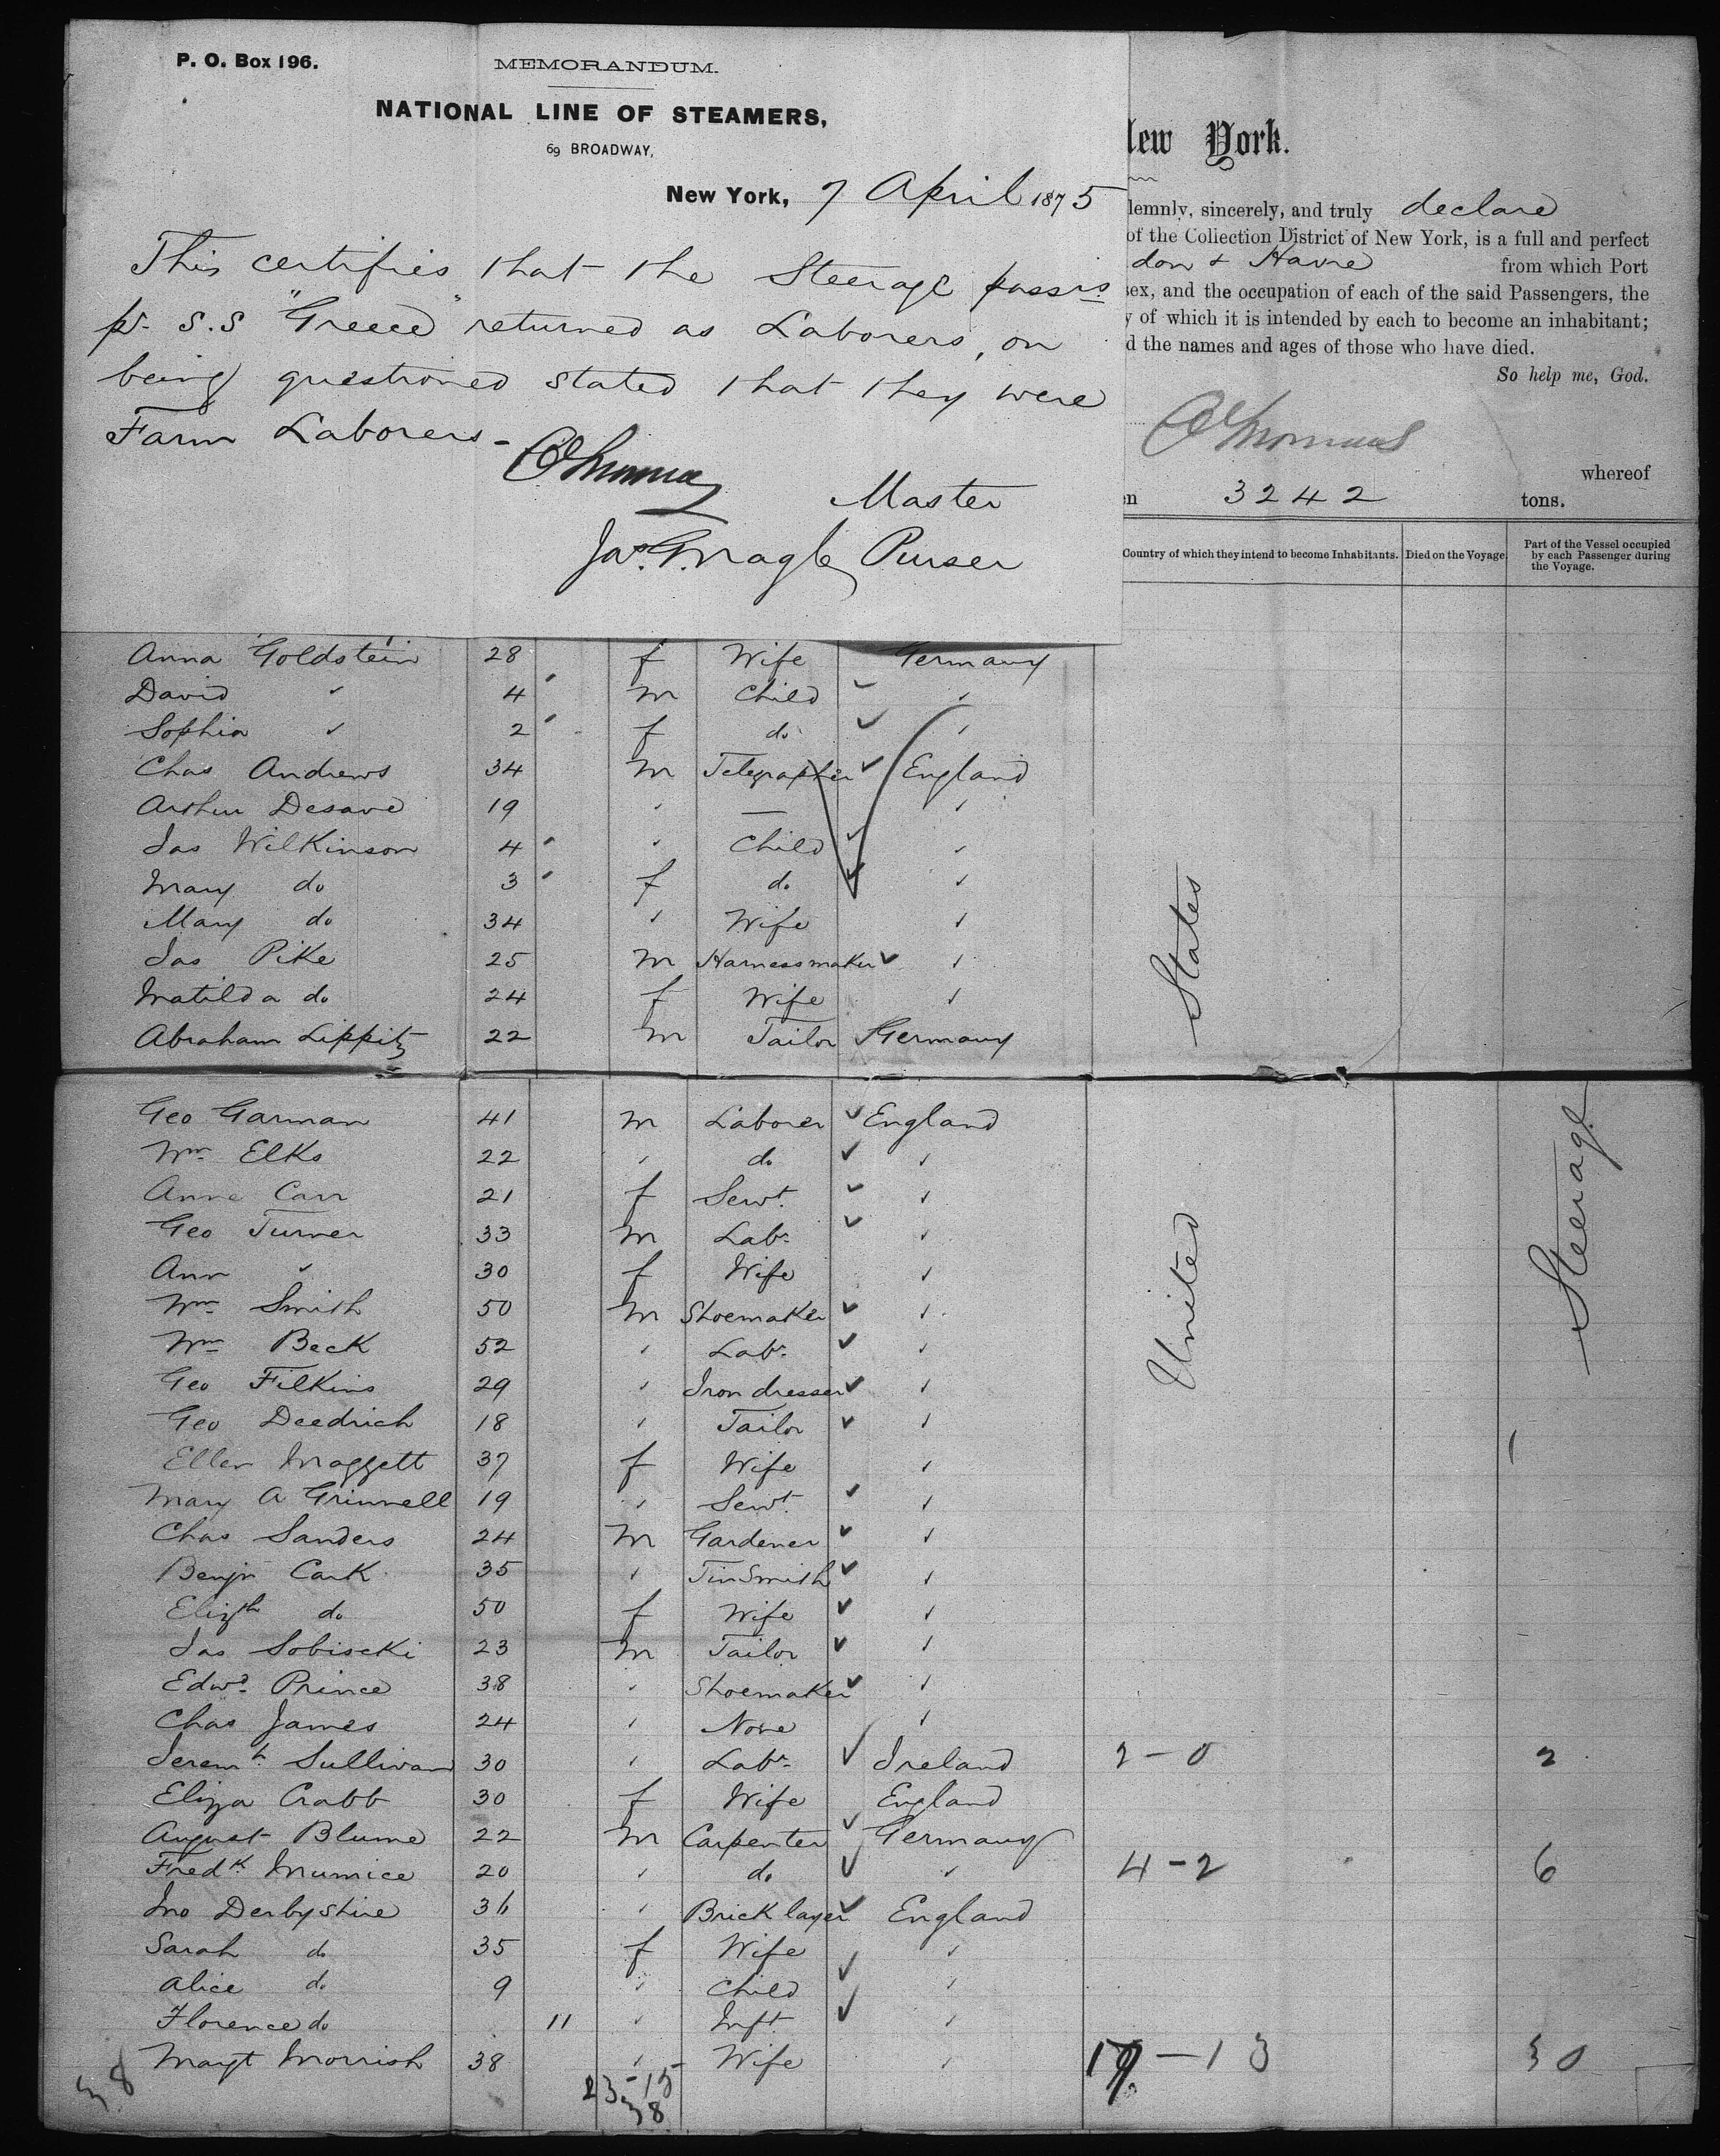 P. O. Box 196.
MEMORANDUM.
NATIONAL LINE OF STEAMERS,
69 BROADWAY,
New York, 7 April 1875
This certifies that the Steerage passrs
pr. S.S "Greece" returned as Laborers, on
being questioned stated that they were
Farm Laborers-
Master
Purser
New York.
lemnly, sincerely, and truly declare
of the Collection District of New York, is a full and perfect
don & Havre from which Port
sex, and the occupation of each of the said Passengers, the
y of which it is intended by each to become an inhabitant;
d the names and ages of those who have died.
So help me, God.
whereof
en 3242 tons.
Country of which they intend to become Inhabitants. Died on the Voyage. Part of the Vessel occupied by each Passenger during the Voyage.
Anna Goldstein 28 f Wife Germany
David " 4 m Child "
Sophia " 2 f do "
Chas Andrews 34 m Telegrapher England
Arthur Desave 19 " — "
Jas Wilkinson 4 " Child "
Mary do 3 f do "
Mary do 34 " Wife "
Jas Pike 25 m Harnessmaker "
Matilda do 24 f Wife "
Abraham Lippitz 22 m Tailor Germany
States
Geo Garman 41 m Laborer England
Wm Elks 22 " do "
Anne Carr 21 f Servt. "
Geo Turner 33 m Labr. "
Ann " 30 f Wife "
Wm Smith 50 m Shoemaker "
Wm Beck 52 " Labr. "
Geo Filkins 29 " Iron dresser "
Geo Deedrich 18 " Tailor "
Ellen Maggett 37 f Wife "
Mary A Grinnell 19 " Servt. "
Chas Sanders 24 m Gardener "
Benjn Cark 35 " TinSmith "
Elizth do 50 f Wife "
Jas Sobiscki 23 m Tailor "
Edwd. Prince 38 " Shoemaker "
Chas James 24 " None "
Jeremh. Sullivan 30 " Labr. Ireland 2-0 2
Eliza Crabb 30 f Wife England
August Blume 22 m Carpenter Germany
Fredk Mumice 20 " do " 4-2 6
Jno Derbyshire 36 " Bricklayer England
Sarah do 35 f Wife "
Alice do 9 " Child "
Florence do 11 " Inft. "
Margt Morrish 38 " Wife " 17-13 30
United
Steerage
38
23-15
38